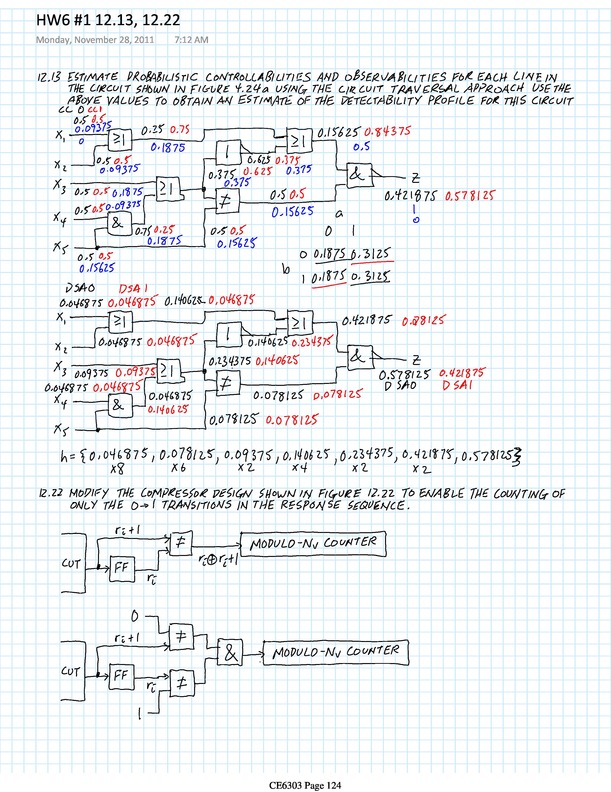 HW6 #1 12.13, 12.22
Monday, November 28, 2011 7:12 AM
12.13 ESTIMATE PROBABILISTIC CONTROLLABILITIES AND OBSERVABILITIES FOR EACH LINE IN
THE CIRCUIT SHOWN IN FIGURE 4.24a USING THE CIRCUIT TRAVERSAL APPROACH USE THE
ABOVE VALUES TO OBTAIN AN ESTIMATE OF THE DETECTABILITY PROFILE FOR THIS CIRCUIT
CC0 CC1
0.5 0.5
X1 0.09375
0
≥1
0.25 0.75
0.1875
≥1
0.15625 0.84375
0.5
X2 0.5 0.5
0.09375
1
0.625 0.375
0.375
0.375 0.625
0.375
&
Z
0.421875 0.578125
1
0
X3 0.5 0.5 0.1875
≥1
≠
0.5 0.5
0.15625
X4 0.5 0.5 0.09375
&
0.75 0.25
0.1875
0.5 0.5
0.15625
X5
0.5 0.5
0.15625
a
0 1
0 0.1875 0.3125
b
1 0.1875 0.3125
DSA0 DSA1
0.046875 0.046875 0.140625 0.046875
X1
≥1
≥1
0.421875 0.28125
X2 0.046875 0.046875
1
0.140625 0.234375
&
Z
X3 0.09375 0.09375
≥1
0.234375 0.140625
0.578125 0.421875
DSA0 DSA1
0.046875 0.046875
X4
&
0.046875
0.140625
≠
0.078125 0.078125
X5
0.078125 0.078125
h = {0.046875, 0.078125, 0.09375, 0.140625, 0.234375, 0.421875, 0.578125}
x8 x6 x2 x4 x2 x2
12.22 MODIFY THE COMPRESSOR DESIGN SHOWN IN FIGURE 12.22 TO ENABLE THE COUNTING OF
ONLY THE 0→1 TRANSITIONS IN THE RESPONSE SEQUENCE.
ri+1
CUT FF ri ≠ ri⊕ri+1 MODULO-Nv COUNTER
0
ri+1 ≠
& MODULO-Nv COUNTER
CUT FF ri ≠
1
CE6303 Page 124